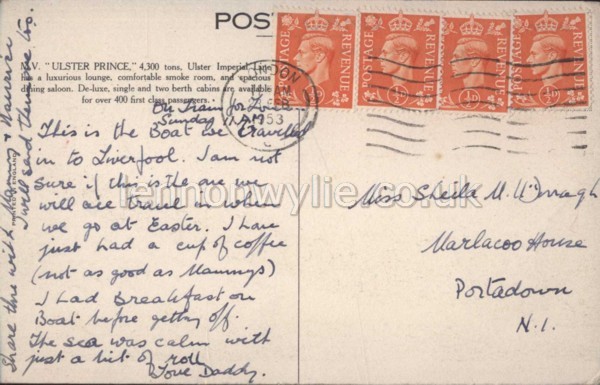 POST
M.V. "ULSTER PRINCE," 4,300 tons, Ulster Imperial Line
has a luxurious lounge, comfortable smoke room, and spacious
dining saloon. De-luxe, single and two berth cabins are available
for over 400 first class passengers.
On Train for
Sunday 11 AM
This is the Boat we travelled
in to Liverpool. I am not
sure if this is the one we
will all travel in when
we go at Easter. I have
just had a cup of coffee
(not as good as Mammys)
I had Breakfast on
Boat before getting off.
The sea was calm with
just a bit of roll
Love Daddy.
Share this with
I will send them one too.
POSTAGE REVENUE
POSTAGE REVENUE
POSTAGE REVENUE
POSTAGE REVENUE
½D ½D ½D
LONDON
1953
Miss Sheila M. McDonagh
Marlacoo House
Portadown
N.I.
lennonwylie.co.uk